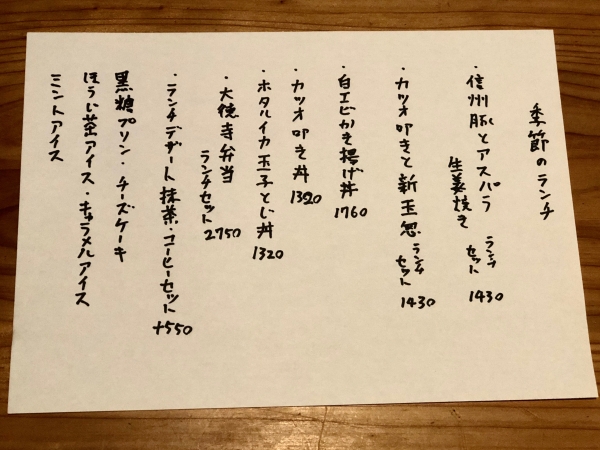 季節のランチ
・信州豚とアスパラ
生姜焼き ランチセット 1430
・カツオ叩きと新玉葱 ランチセット 1430
・白エビかき揚げ丼 1760
・カツオ叩き丼 1320
・ホタルイカ玉子とじ丼 1320
・大徳寺弁当
ランチセット 2750
・ランチデザート 抹茶・コーヒーセット +550
黒糖プリン・チーズケーキ
ほうじ茶アイス・キャラメルアイス
ミントアイス